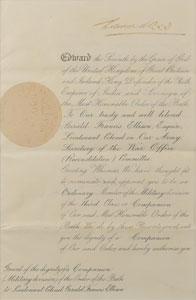 Edward the Seventh by the Grace of God
of the United Kingdom of Great Britain
and Ireland King Defender of the Faith
Emperor of India and Sovereign of
the Most Honorable Order of the Bath
To Our trusty and well beloved
Gerald Francis Ellison Esquire
Lieutenant Colonel in Our Army
Secretary of the War Office
(Reconstitution) Committee
Greeting Whereas We have thought fit
to nominate and appoint you to be an
Ordinary Member of the Military Division
of the Third Class or Companion
of Our said Most Honorable Order of the
Bath We do by these Presents grant unto
you the dignity of a Companion
of Our said Order and hereby authorize you
Grant of the dignity of a Companion
Military division of the Order of the Bath
to Lieutenant Colonel Gerald Francis Ellison